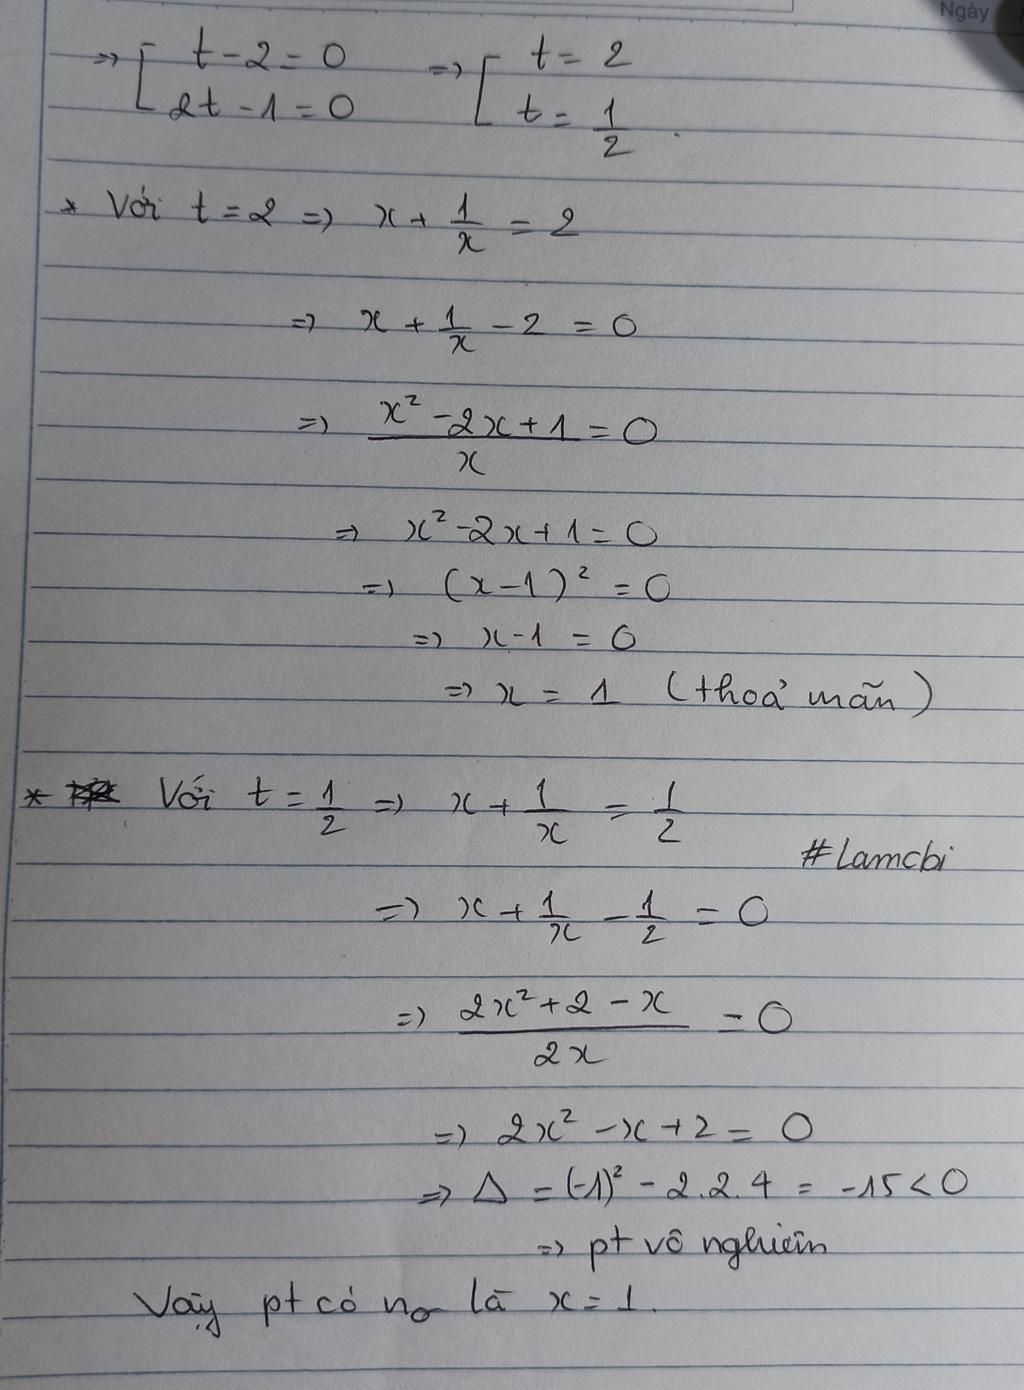 Ngày
=> [ t - 2 = 0 => [ t = 2
2t - 1 = 0 t = 1/2 .
* Với t = 2 => x + 1/x = 2
=> x + 1/x - 2 = 0
=> (x² - 2x + 1)/x = 0
=> x² - 2x + 1 = 0
=> (x - 1)² = 0
=> x - 1 = 0
=> x = 1 (thoả mãn)
* Với t = 1/2 => x + 1/x = 1/2
#Lamcbi
=> x + 1/x - 1/2 = 0
=> (2x² + 2 - x)/2x = 0
=> 2x² - x + 2 = 0
=> Δ = (-1)² - 2.2.4 = -15 < 0
=> pt vô nghiệm
Vậy pt có no là x = 1.